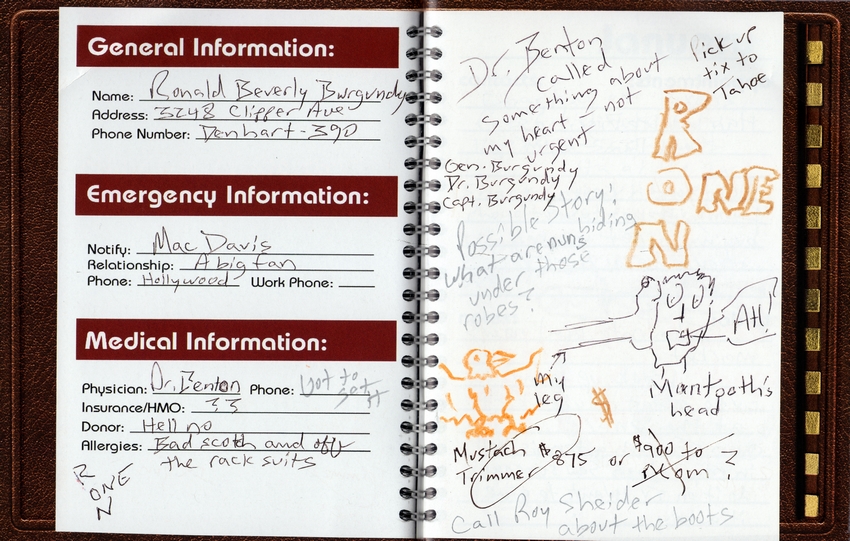 General Information:
Name: Ronald Beverly Burgundy
Address: 3248 Clipper Ave
Phone Number: Denhart-390
Emergency Information:
Notify: Mac Davis
Relationship: A big fan
Phone: Hollywood Work Phone:
Medical Information:
Physician: Dr. Benton Phone: Got to
get it
Insurance/HMO: ??
Donor: Hell no
Allergies: Bad scoth and off
the rack suits
R
ONE
N
Dr. Benton
called
something about
my heart - not
urgent
Pick up
tix to
Tahoe
Gen. Burgundy
Dr. Burgundy
Capt. Burgundy
R
ONE
N
Possible Story:
what are nuns hiding
under those
robes?
AH!
my
leg
$
Mantooth's
head
Mustach $875 or $900 to
Trimmer Mom ?
Call Roy Sheider
about the boots